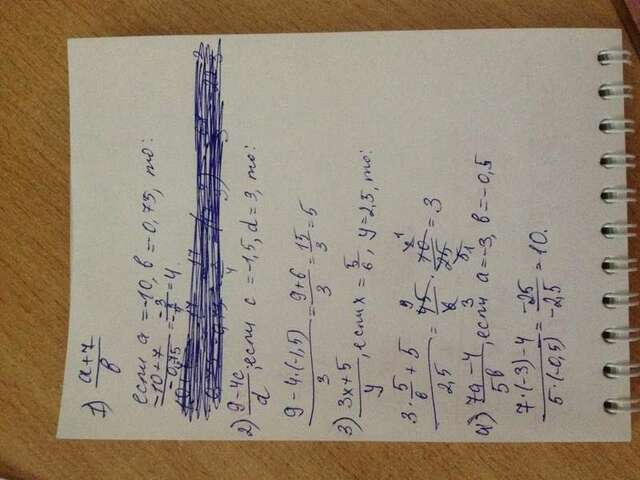 1) (a+7)/b
если a = -10, b = -0,75, то:
(-10+7)/(-0,75) = = 4.
2) (9-4c)/d; если c = -1,5, d = 3, то:
(9-4·(-1,5))/3 = (9+6)/3 = 15/3 = 5
3) (3x+5)/y, если x = 5/6, y = 2,5, то:
(3·5/6+5)/2,5 = 45/6 · 10/25 = 3
4) (7a-4)/5b, если a = -3, b = -0,5
(7·(-3)-4)/(5·(-0,5)) = -25/-2,5 = 10.